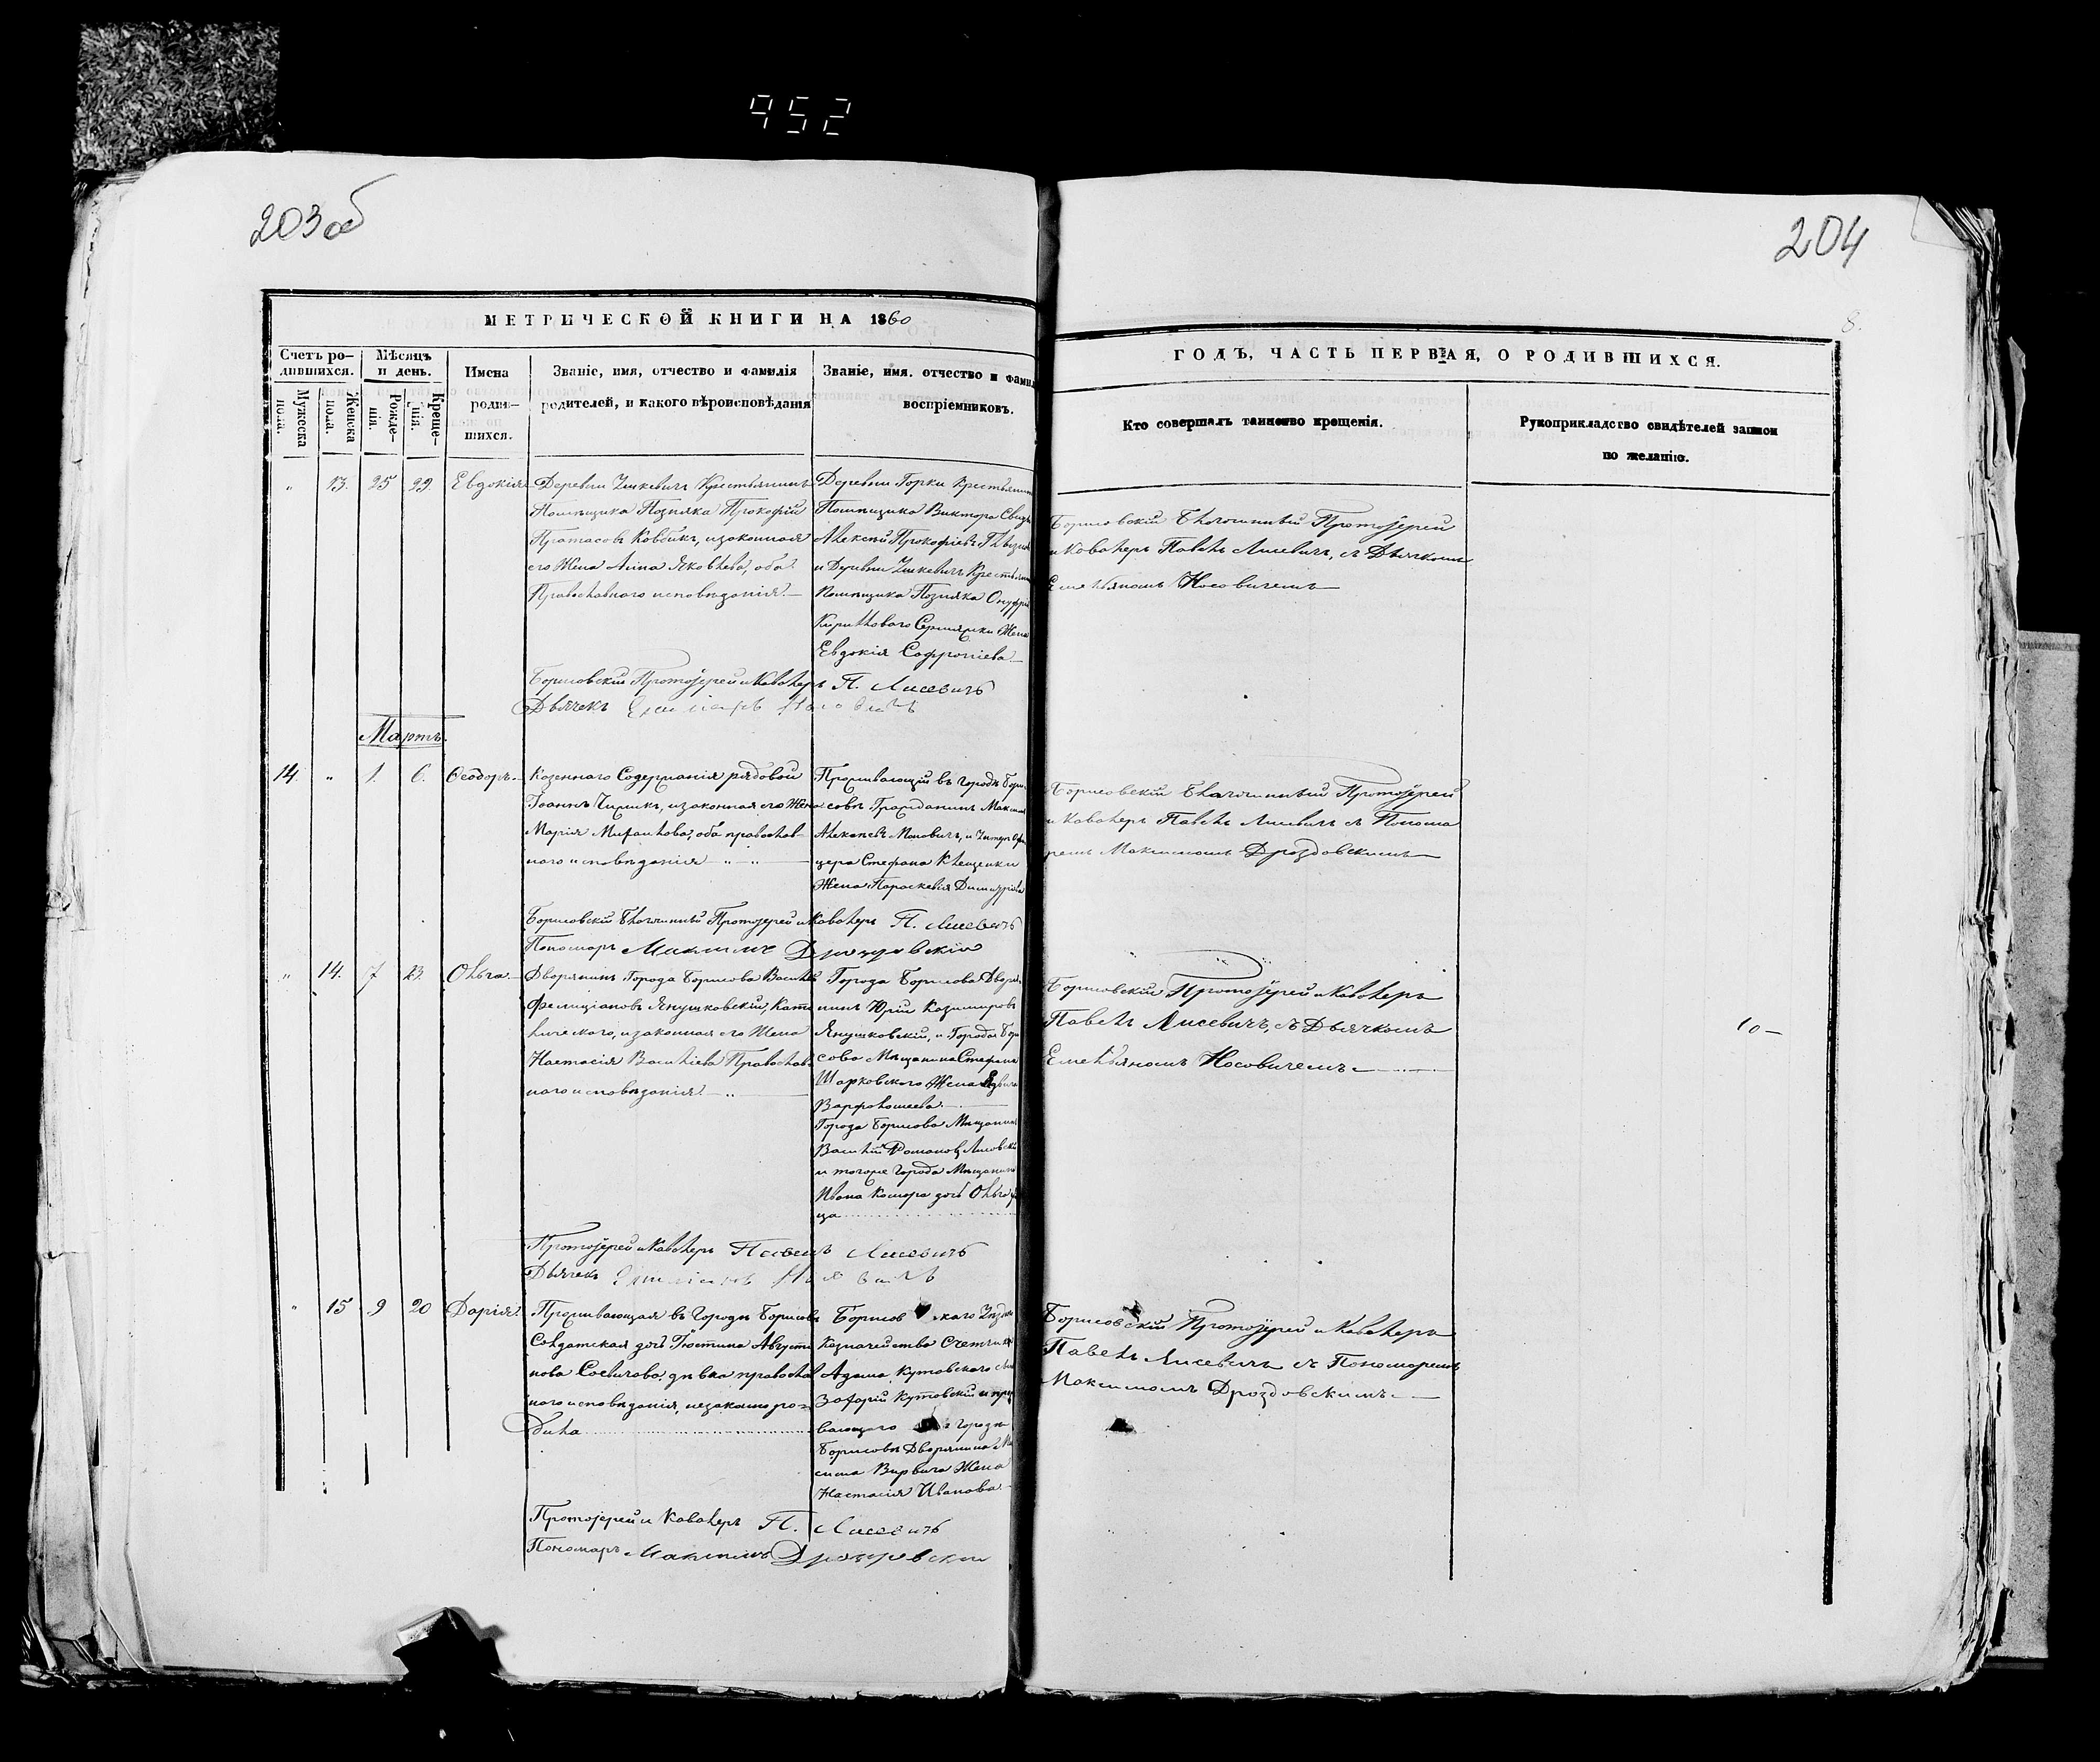 952
203об
204
8.
МЕТРИЧЕСКОЙ КНИГИ НА 1860
ГОДЪ, ЧАСТЬ ПЕРВАЯ, О РОДИВШИХСЯ.
Счетъ ро-
дившихся.
Мѣсяцъ
и день.
Мужеска
пола.
Женска
пола.
Рожде-
нія.
Креще-
нія.
Имена
родив-
шихся.
Званіе, имя, отчество и фамилія
родителей, и какого вѣроисповѣданія
Званіе, имя. отчество и фамил
воспріемниковъ.
Кто совершалъ таинство крещенія.
Рукоприкладство свидѣтелей записи
по желанію.
" 13. 25 29. Евдокія
Деревни Крестьянинъ
Помѣщика Позняка Прокофій
Протасовъ изаконная
его Жена Анна Яковлева, оба
Православнаго исповѣданія.
Деревни Горки Крестьянин
Помѣщика Виктора
Алексѣй Прокофіевъ
и Деревни Крестьян
Помѣщика Позняка Онуфрі
Кириллового Жена
Евдокія Софроніева
Борисовскій Благочинный Протоіерей
и Кавалеръ Павелъ Лисевичъ, съ Дьячкомъ
Емельяномъ Носовичемъ
Борисовскій Протоіерей и Кавалеръ П. Лисевичъ
Дьячекъ Емиліанъ Носовичъ
Мартъ.
14. " 1. 6. Ѳеодоръ.
Козеннаго Содержанія рядовой
Іоаннъ Чирикъ, изаконная его Жена
Марія Михаилова, оба православ-
наго исповѣданія " "
Проживающій въ городѣ Бори-
совѣ Гражданинъ Максим
Алексѣевъ и Унтеръ Офи
цера Стефана Клещенки
Жена Параскевія Димитріева
Борисовскій Благочинный Протоіерей
и Кавалеръ Павелъ Лисевичъ съ Понома
ремъ Максимомъ Дроздовскимъ
Борисовскій Благочинный Протоіерей и Кавалеръ П. Лисевичъ
Пономарь Максимъ Дроздовскій
" 14. 7 23. Ольга.
Дворянинъ Города Борисова Василій
Фелиціановъ Янушковскій, Като
лическаго, изаконная его Жена
Настасія Васильева Православ
наго исповѣданія. "
Города Борисова Дворя
нинъ Юрій Казимировъ
Янушковскій, и Города Бори
сова Мѣщанина Стефана
Шарковскаго Жена
Варфоломеева.
Города Борисова Мѣщанинъ
Василій Романовъ
и тогоже Города Мѣщанина
Ивана Комара дочь Ольга
ца
Борисовскій Протоіерей и Кавалеръ
Павелъ Лисевичъ, съ Дьячкомъ
Емельяномъ Носовичемъ.
10-
Протоіерей и Кавалеръ Павелъ Лисевичъ
Дьячекъ Емиліанъ Носовичъ
" 15 9 20 Дарія.
Проживающая въ Городѣ Борисовѣ
Солдатская дочь Іюстина Августи
нова дѣвка православ
наго исповѣданія, незаконно ро-
дила
Борисовскаго Уѣздн
Казначейства Счетчика
Адама Кутовскаго
Захарій Кутовскій и про
вающаго Городѣ
Борисовѣ Дворянина Ма
сима Жена
Настасія Иванова
Борисовскій Протоіерей и Кавалеръ
Павелъ Лисевичъ съ Пономаремъ
Максимомъ Дроздовскимъ.
Протоіерей и Кавалеръ П. Лисевичъ
Пономарь Максимъ Дроздовскій